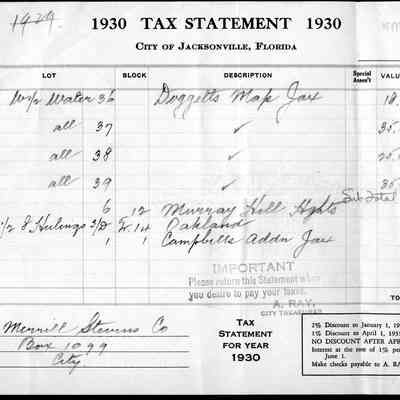 1929.
1930 TAX STATEMENT 1930
CITY OF JACKSONVILLE, FLORIDA
LOT BLOCK DESCRIPTION Special Assm't VALU
W½ Water 36 Doggetts Map Jax 18.
all 37 ✓ 35.
all 38 ✓
all 39 ✓ 35
Sub Total
6 12 Murray Hill Hghts
Fr. 14 Oakland
1 1 Campbells Addn Jax
IMPORTANT
Please return this Statement when
you desire to pay your taxes.
A. RAY,
CITY TREASURER
TO
Merrill Stevens Co
Box 1099
City
TAX
STATEMENT
FOR YEAR
1930
2% Discount to January 1, 19
1% Discount to April 1, 193
NO DISCOUNT AFTER APR
Interest at the rate of 1% pe
June 1.
Make checks payable to A. RA